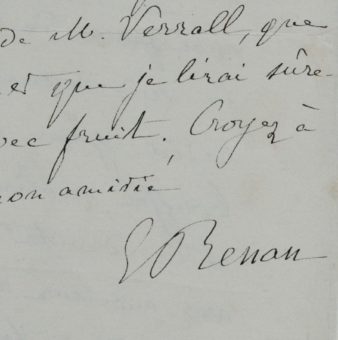 de M. Verrall, que
et que je lirai sûre-
vec fruit. Croyez à
on amitié
E Renan